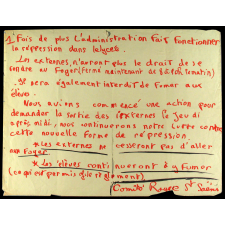 1 Fois de plus l'administration fait fonctionner
la répression dans le lycée.
Les externes, n'auront plus le droit de se
rendre au Foyer (fermé maintenant de
Il sera également interdit de fumer aux
élèves.
Nous avions commencé une action pour
demander la sortie des externes le jeudi
après midi, nous continuerons notre lutte contre
cette nouvelle forme de répression
* Les externes ne cesseront pas d'aller
au Foyer
* Les élèves continueront à y Fumer
(ce qui est permis par le règlement).
Comité Rouge St